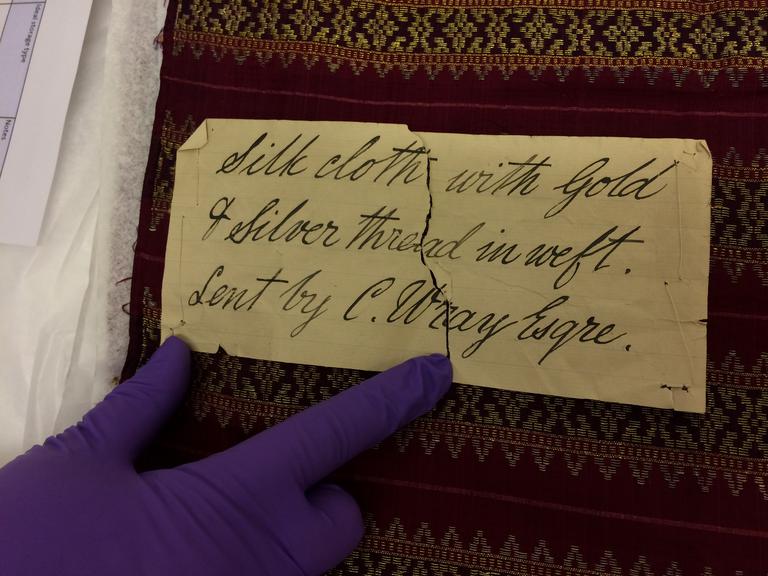 Silk cloth with Gold
& Silver thread in weft.
Lent by C. Wray Esqre.
Ideal storage type
Notes